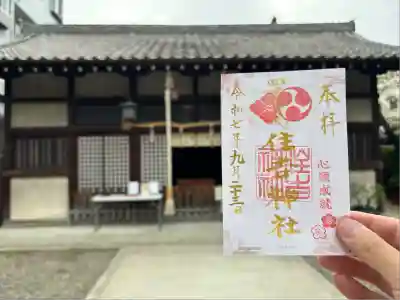 奉拝
住吉神社
心願成就
令和七年九月二十三日